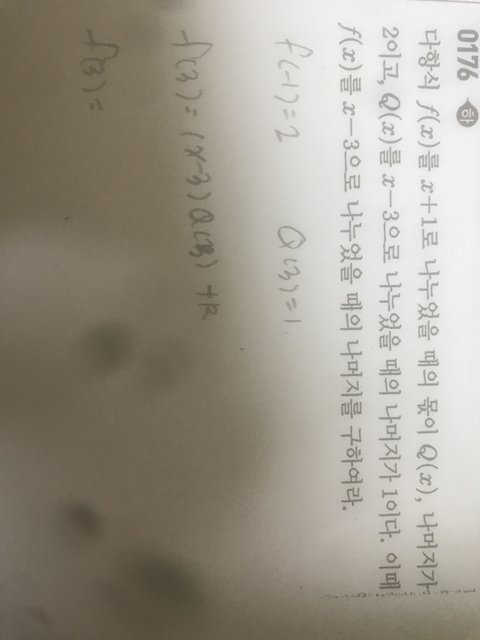 0176 하
다항식 f(x)를 x+1로 나누었을 때의 몫이 Q(x), 나머지가
2이고, Q(x)를 x-3으로 나누었을 때의 나머지가 1이다. 이때
f(x)를 x-3으로 나누었을 때의 나머지를 구하여라.
f(-1)=2 Q(3)=1.
f(3)=(x-3)Q(3)+R
f(3)=